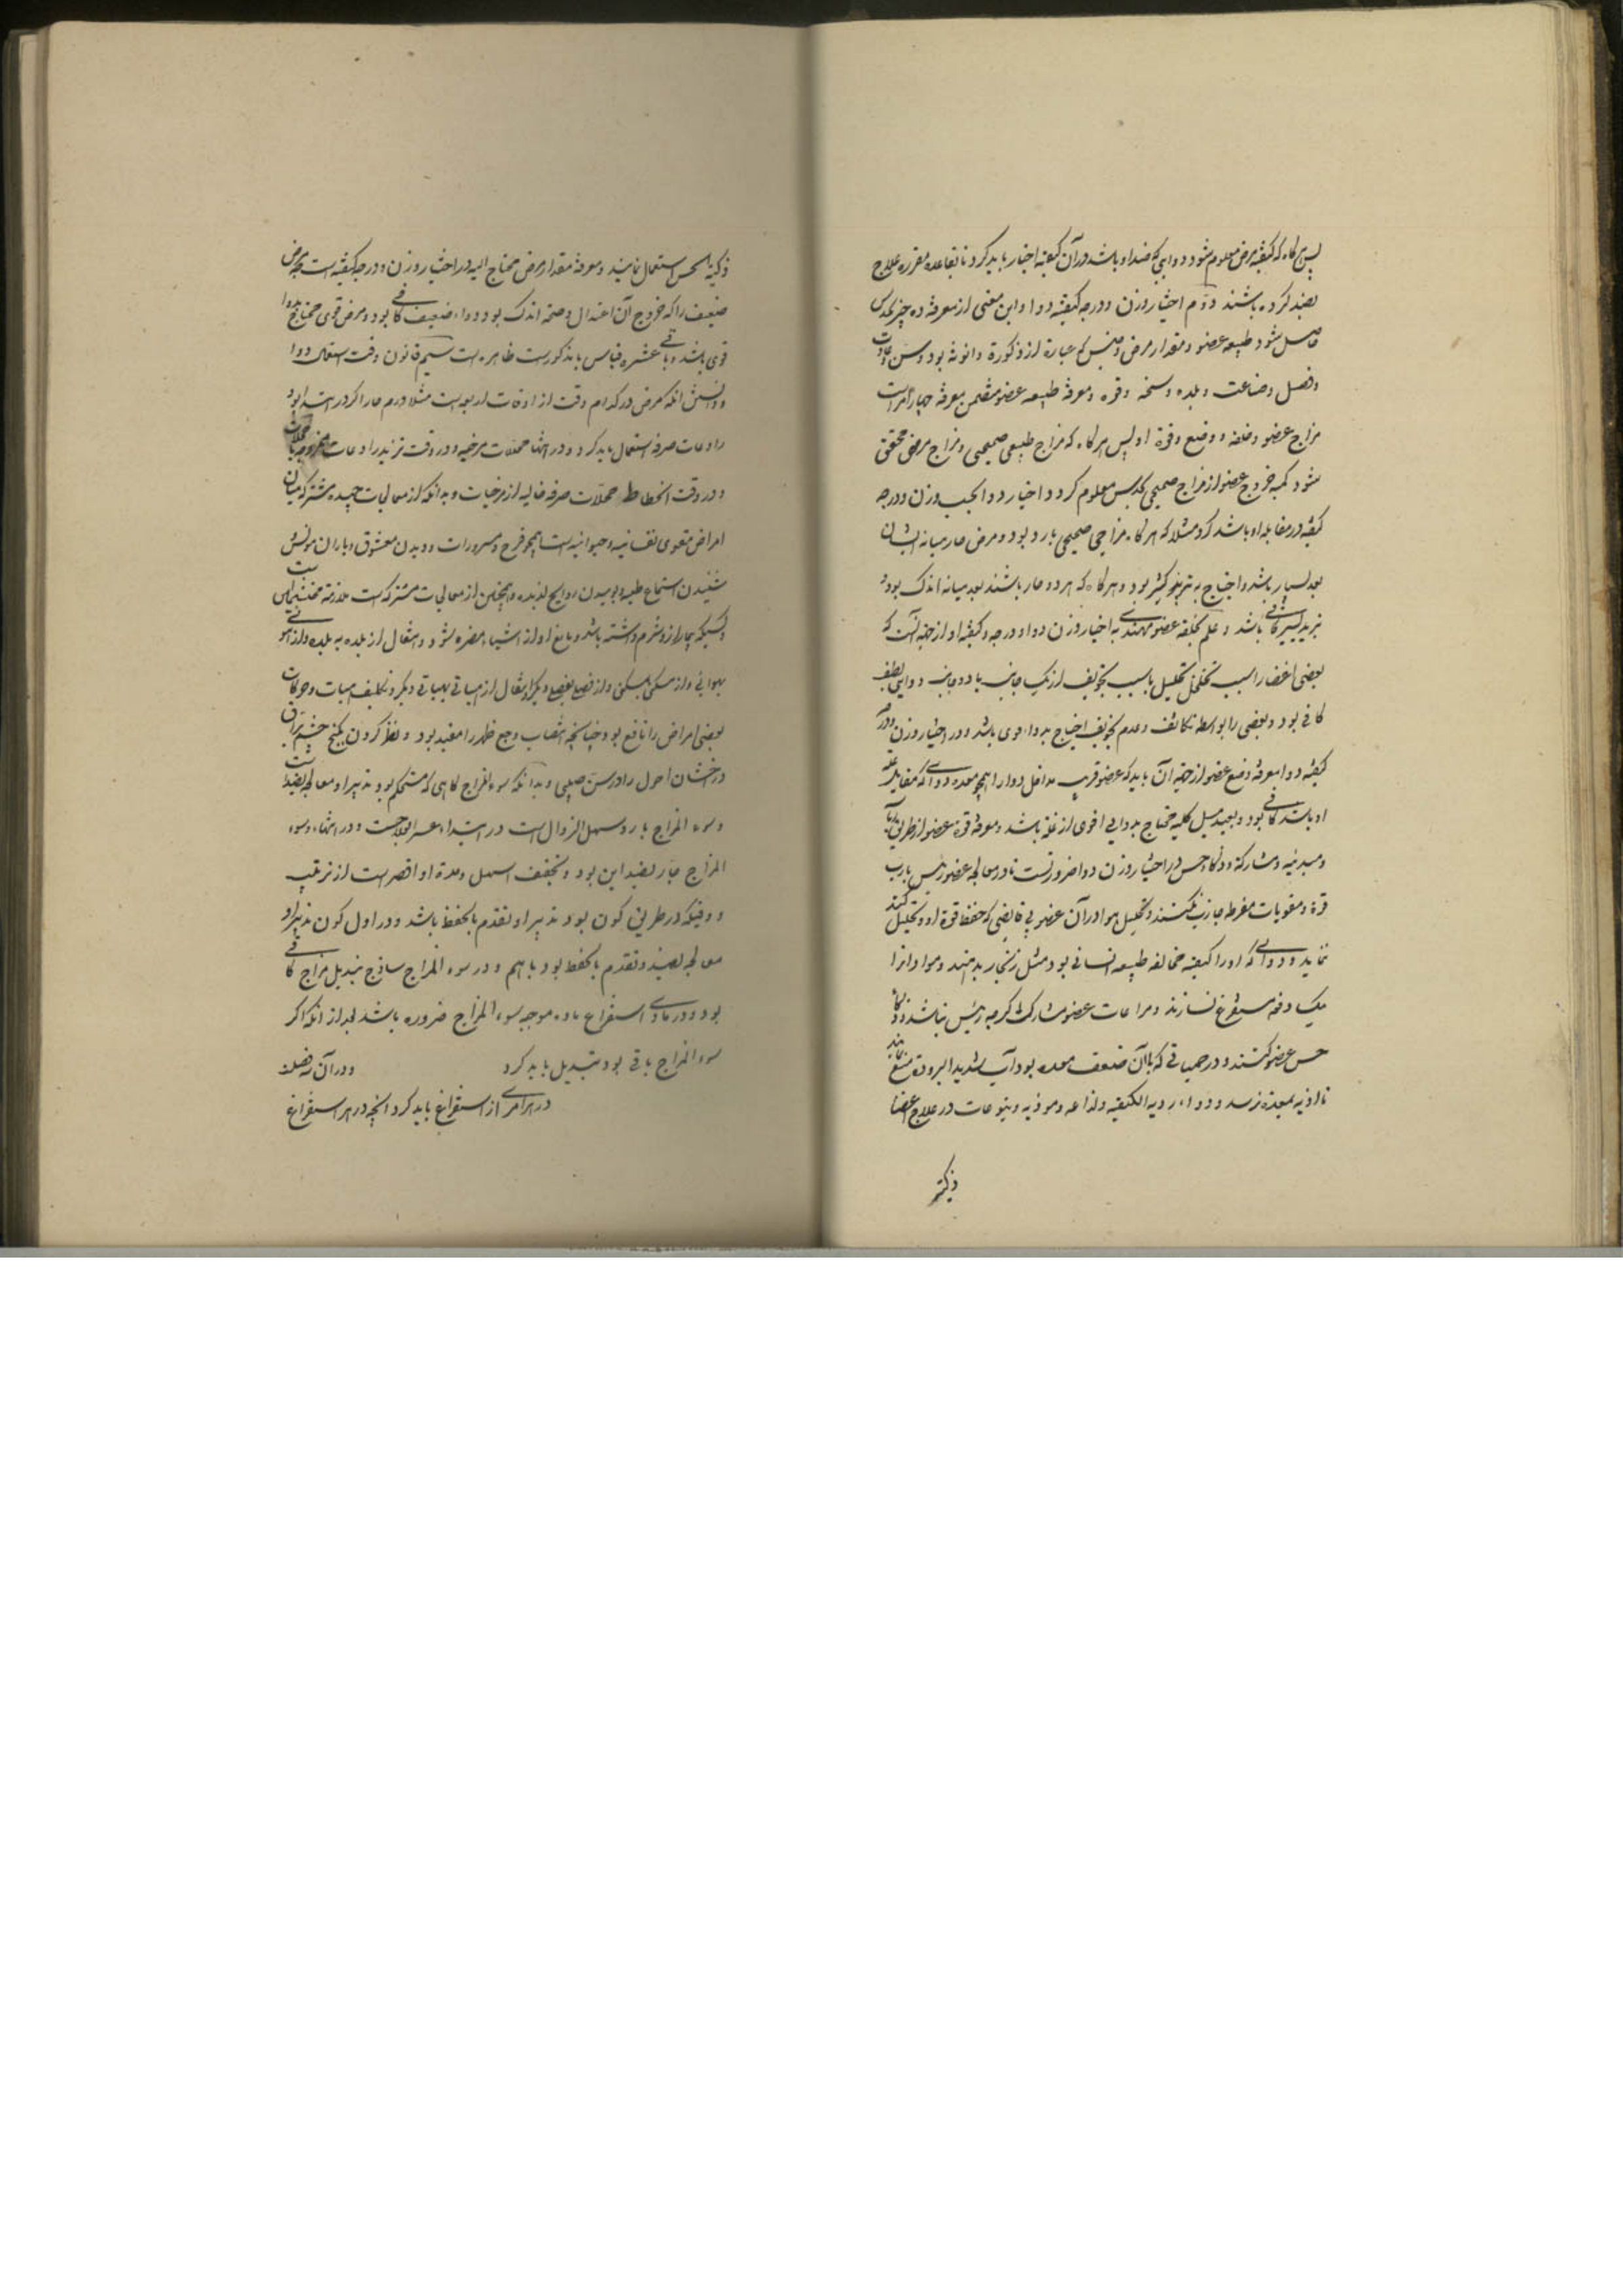 پس هرگاه که کیفیة مرض معلوم شود دوایی که ضد او باشد در آن کیفیة اختیار باید کرد تا بقاعده مقرره علاج
بضد کرده باشند دوم اختیار وزن و درجه کیفیة دوا و این معنی از معرفة ده چیز بحدس
حاصل شود طبیعه عضو و مقدار مرض و جنس که عبارة از ذکورة و انوثه بود و سن و عادت
و فصل و صناعت و بلده و سخنه و قوه و معرفة طبیعه عضو متضمن معرفة چهار امر است
مزاج عضو و خلقه و وضع و قوة او پس هرگاه که مزاج طبیعی صحیحی و مزاج مرضی محقق
شود کمیه خروج عضو از مزاج صحیحی بحدس معلوم کردد و اختیار دوا بحسب وزن و درجه
کیفیه در مقابله او باشد کرد مثلا که هرگاه مزاجی صحیحی بارد بود و مرض حار میانه ایشان
بعد بسیار باشد و احتیاج به تبرید کثیر بود و هرگاه که هر دو حار باشند بعد میانه اندک بود و
تبرید یسیر کافی باشد و علم بخلقه عضو مهتدی به اختیار وزن دوا و درجه و کیفیة او از جهة آنست که
بعضی اعضا را بسبب تخلخل تحلیل یا بسبب تجویف از یک جانب یا دو جانب دوایی لطیف
کافی بود و بعضی را بواسطه تکاثف و عدم تجویف احتیاج بدواء قوی باشد و در اختیار وزن و درجه
کیفیة دوا معرفة وضع عضو از جهة آن باید که عضو قریب مداخل دوا را همچو معده دوائی که مقابل علة
او باشد کافی بود و بعید مثل کلیه محتاج بدوایی اقوی از علة باشد و معرفة قوة عضو از طریق ریاسة
و مبدئیه و مشارکة و ذکاء حس در اختیار وزن دوا ضرورتست تا در معالجه عضو رئیس
قوة و مقویات مفرطه جایز نکنند و تحلیل مواد در آن عضو بی قابضی که حفظ قوة او کند تحلیل
ننمایند و دوائی که او را کیفیه مخالفه طبیعه انسانی بود مثل زنجار بدهند و مواد او را
بیک دفعه مستفرغ نسازند و مراعات عضو مشارک اگرچه رئیس نباشد و ذکاء
حس عضو کنند و در حمیاتی که با آن ضعف معده بود آب شدید البرودة منع نمایند
تا اذیه بمعده نرسد و دواء ردیه الکیفیه و لذاعه و موذیه و یتوعات در علاج اعضا
ذکیة
ذکیة الحس استعمال ننمایند و معرفة مقدار مرض محتاج الیه در اختیار وزن و درجه کیفیة است چه مرض
ضعیف را که خروج آن اعتدال و صحه اندک بود دواء ضعیف کافی بود و مرض قوی محتاج بدوا
قوی باشد و باقی عشره قیاس بمذکورست ظاهره است سیم قانون وقت استعمال دوا
و دانستن آنکه مرض در کدام وقت از اوقات اربعه است مثلا ورم حار اکر در ابتدا بود
رادعات صرفه استعمال باید کرد و در انتها محللات مرخیه و در وقت تزید رادعات ممزوجه با محللات
و در وقت انحطاط محللات صرفه خالیه از مرخیات و بدانکه از معالجات جیده مشترکه میان
امراض مقوی نفسانیه و حیوانیه است همچو فرح و مسرورات و دیدن معشوق و یاران مونس و
شنیدن استماع طیبه و بوییدن روایح لذیذه و همچنین از معالجات مشترکه است ملازمه محتشمان
و کسیکه بیمار از و شرم داشته باشد و مانع او از اشیاء مضره شود و انتقال از بلده به بلده و از هوائی
بهوائی و از مسکنی بمسکنی و از فصل بفصل دیگر و انتقال از هیأتی بهیأتی دیگر و تکلیف هیات و حرکات
بعضی امراض را نافع بود چنانچه انتصاب وجع ظهر را مفید بود و نظر کردن بکنج چشم براق
درخشان احول را در سن صبیی و بدانکه سوء المزاج گاهی که مستحکم بود تدبیر او معالجه بضد است
و سوء المزاج بارد سهل الزوال است در ابتداء عسر العلاجست و در انتهاء و سوء
المزاج حار بضد این بود و تجفیف اسهل و مدة او اقصر است از ترطیب
و وقتیکه در طریق کون بود تدبیر او تقدم بالحفظ باشد و در اول کون تدبیر او
معالجه بضد و تقدم بالحفظ بود با هم و در سوء المزاج ساذج تبدیل مزاج کافی
بود و در مادی استفراغ ماده موجبه سوء المزاج ضروره باشد بعد از آنکه اکر
سوء المزاج باقی بود تبدیل باید کرد و در آن
در هر امری از استفراغ باید کرد آنچه در هر استفراغ